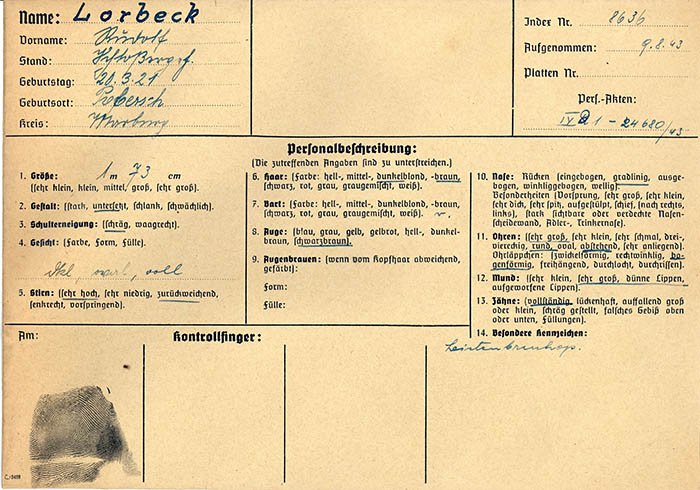 Name: Lorbeck
Vorname: Rudolf
Stand:
Geburtstag: 20.3.21
Geburtsort:
Kreis: Marburg
Index Nr. 8636
Aufgenommen: 9.8.43
Platten Nr.
Pers.-Akten:
1 - 24680/43
Personalbeschreibung:
(Die zutreffenden Angaben sind zu unterstreichen.)
1. Größe: 1 m 73 cm
(sehr klein, klein, mittel, groß, sehr groß).
2. Gestalt: (stark, untersetzt, schlank, schwächlich).
3. Schulterneigung: (schräg, waagrecht).
4. Gesicht: (Farbe, Form, Fülle).
oval, voll
5. Stirn: (sehr hoch, sehr niedrig, zurückweichend,
senkrecht, vorspringend).
6. Haar: (Farbe: hell-, mittel-, dunkelblond, -braun,
schwarz, rot, grau, graugemischt, weiß).
7. Bart: (Farbe: hell-, mittel-, dunkelblond, -braun,
schwarz, rot, grau, graugemischt, weiß).
8. Auge: (blau, grau, gelb, gelbrot, hell-, dunkel-
braun, schwarzbraun).
9. Augenbrauen: (wenn vom Kopfhaar abweichend,
gefärbt):
Form:
Fülle:
10. Nase: Rücken (eingebogen, gradlinig, ausge-
bogen, winkliggebogen, wellig).
Besonderheiten (Vorsprung, sehr groß, sehr klein,
sehr dick, sehr spitz, aufgestülpt, schief, (nach rechts,
links), stark sichtbare oder verdeckte Nasen-
scheidewand, Adler-, Trinkernase).
11. Ohren: (sehr groß, sehr klein, sehr schmal, drei-,
viereckig, rund, oval, abstehend, sehr anliegend).
Ohrläppchen: (zwickelförmig, rechtwinklig, bo-
genförmig, freihängend, durchlocht, durchrissen).
12. Mund: (sehr klein, sehr groß, dünne Lippen,
aufgeworfene Lippen).
13. Zähne: (vollständig, lückenhaft, auffallend groß
oder klein, schräg gestellt, falsches Gebiß oben
oder unten, Füllungen).
14. Besondere Kennzeichen:
Am:
Kontrollfinger: